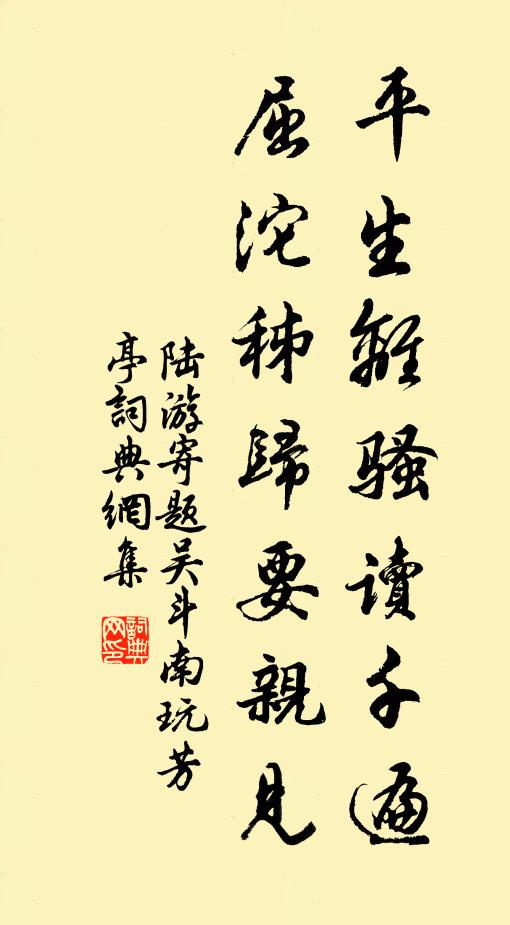 平生離騷讀千遍
屈沱秭歸要親見
陆游寄题吴斗南玩芳
亭詞典網集
詞典网印